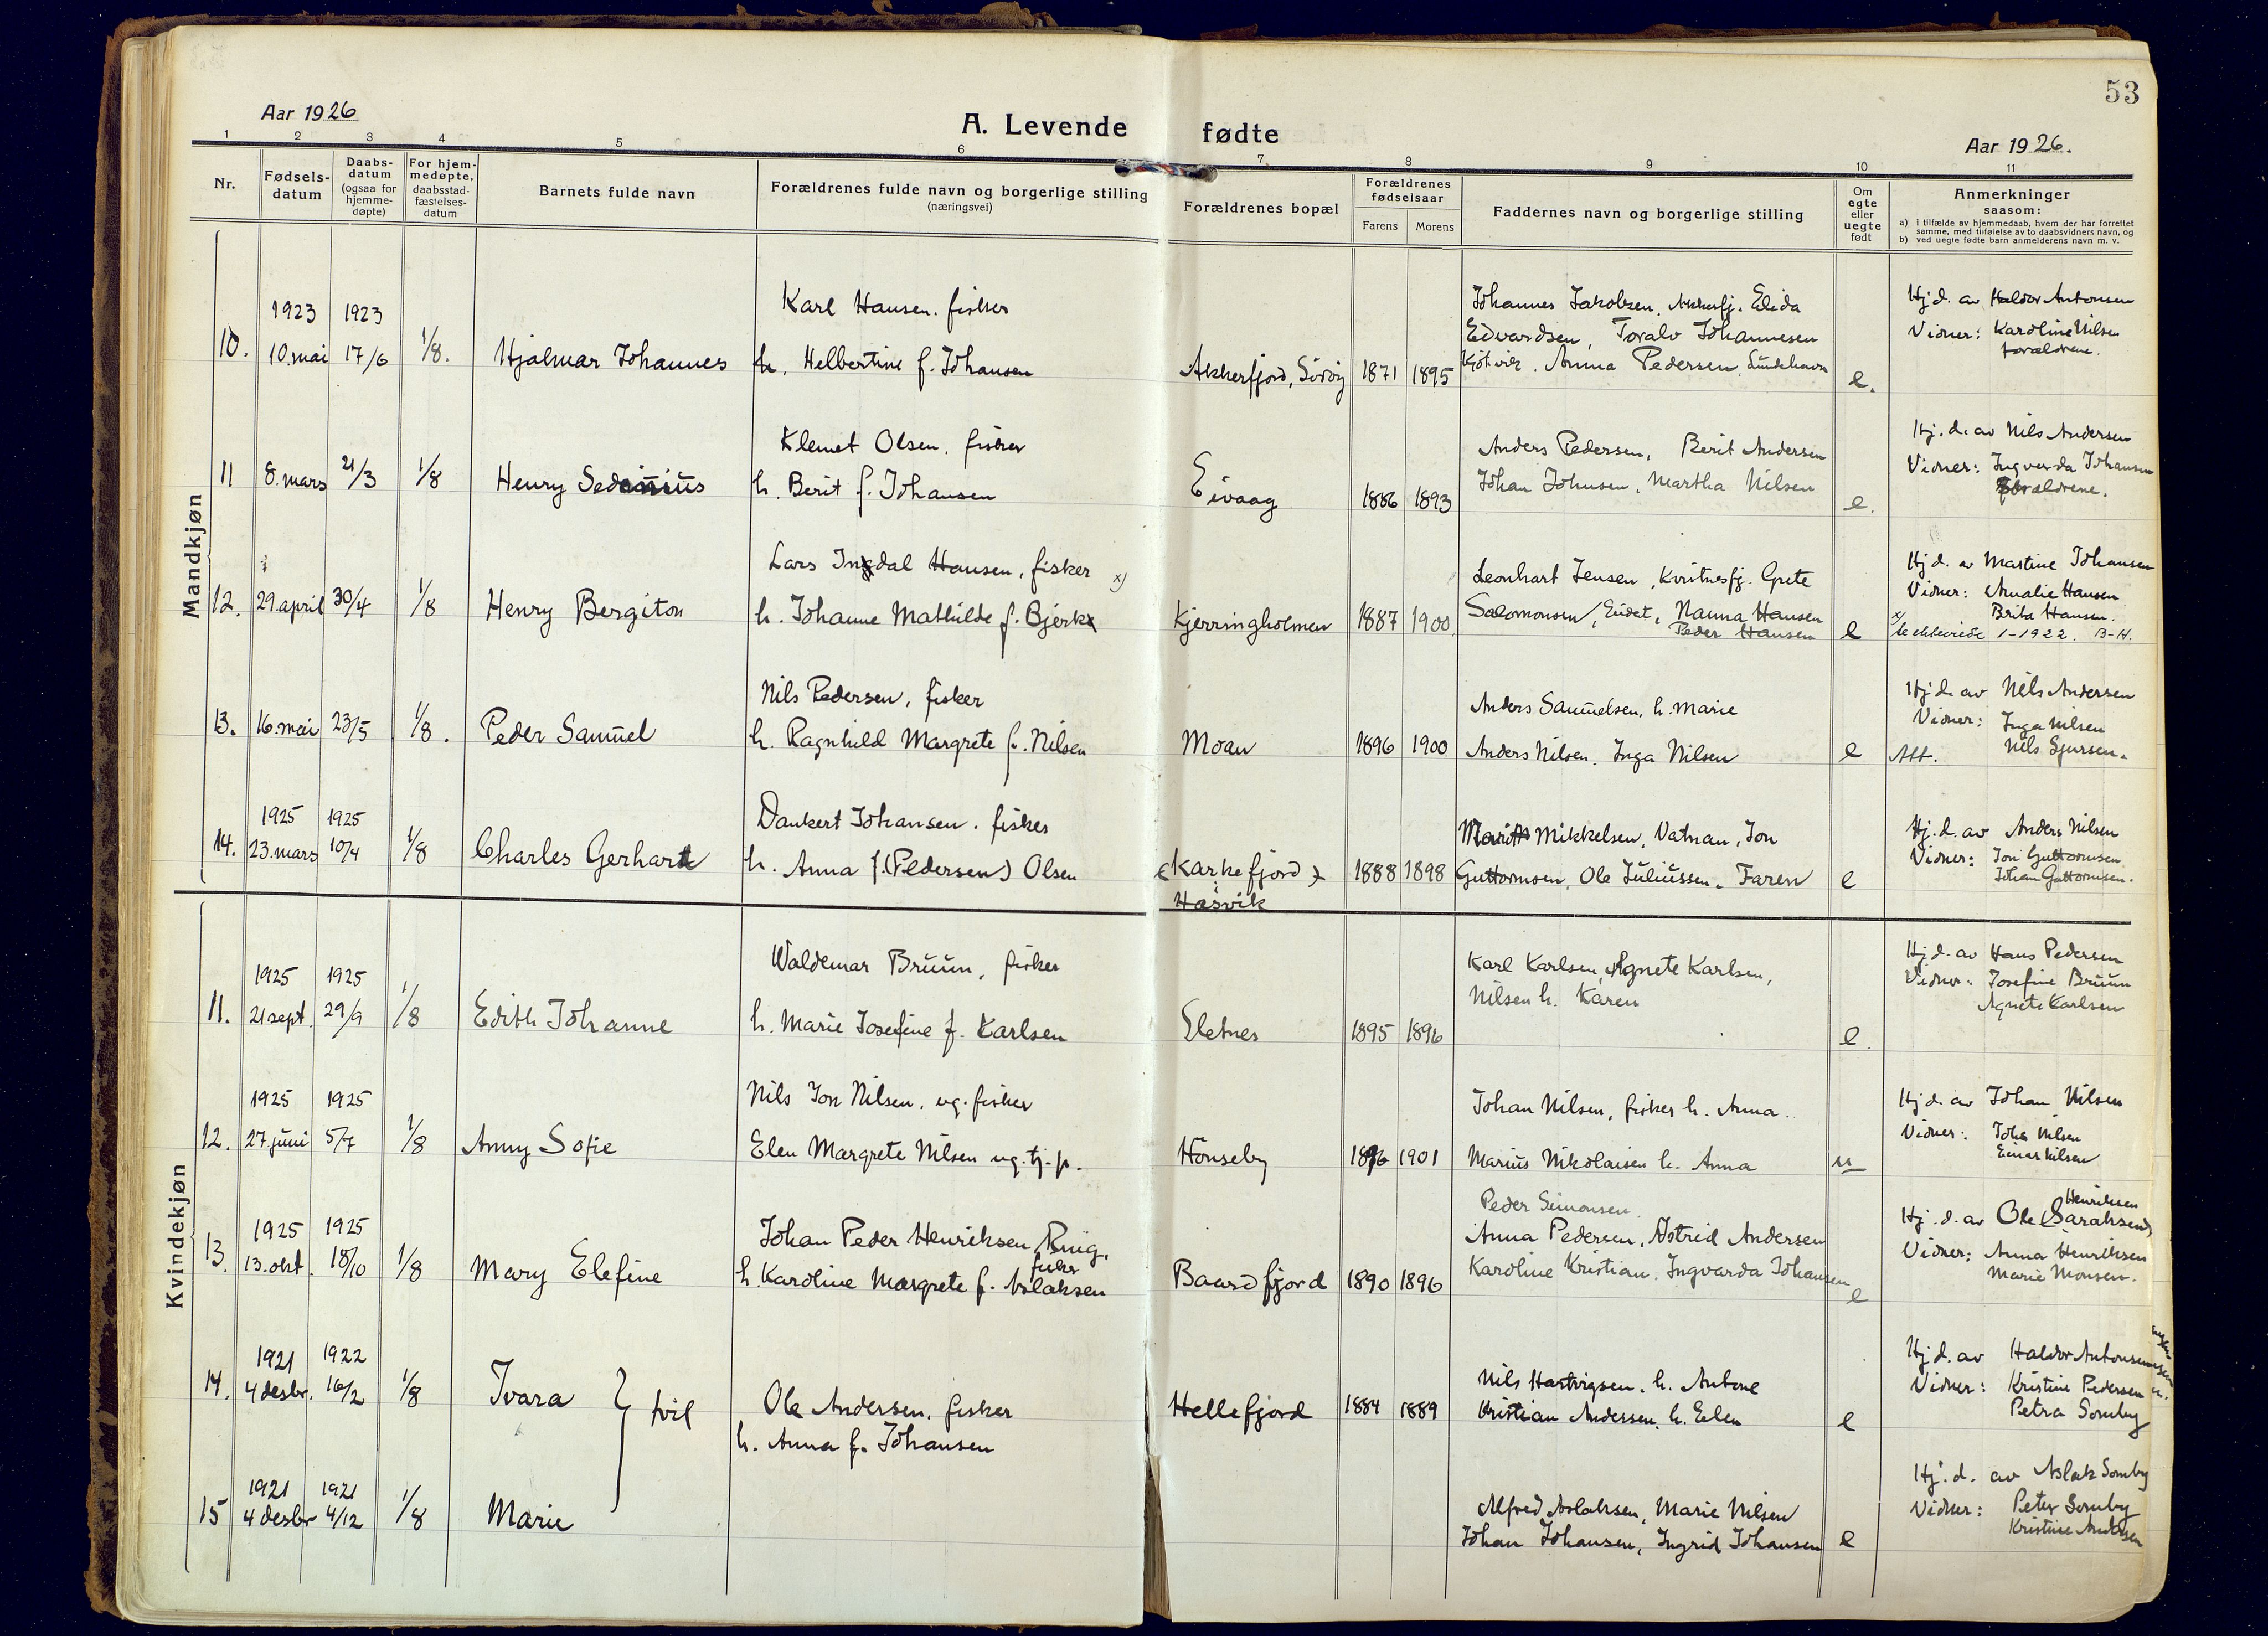 53
Aar 1926
A. Levende fødte
Aar 1926.
1 2 3 4 5 6 7 8 9 10 11
Nr.
Fødsels-
datum
Daabs-
datum
(ogsaa for
hjemme-
døpte)
For hjem-
medøpte,
daabsstad-
fæstelses-
datum
Barnets fulde navn
Forældrenes fulde navn og borgerlige stilling
(næringsvei)
Forældrenes bopæl
Forældrenes
fødselsaar
Farens Morens
Faddernes navn og borgerlige stilling
Om
egte
eller
uegte
født
Anmerkninger
saasom:
a) i tilfælde av hjemmedaab, hvem der har forrettet
samme, med tilføielse av to daabsvidners navn, og
b) ved uegte fødte barn anmelderens navn m. v.
Mandkjøn
10.
1923
10. mai
1923
17/6
1/8.
Hjalmar Johannes
Karl Hansen. fisker
h. Helbertine f. Johansen
Akkerfjord, Sørøy
1871 1895
Johannes Jakobsen, Akkerfj. Elida
Edvardsen, Toralv Johannesen
Kjøtvik. Anna Pedersen, Sundhavn
e.
Hj. d. av Haldor Antonsen
Vidner: Karoline Nilsen
forældrene.
11
8. mars
21/3
1/8
Henry
Klemet Olsen. fisker
h. Berit f. Johansen
Eivaag
1886 1893
Anders Pedersen, Berit Andersen
Johan Johnsen, Martha Nilsen
e.
Hj. d. av Nils Andersen
Vidner: Ingvarda Johansen
Forældrene.
12.
29. april
30/4
1/8
Henry Bergiton
Lars Ingdal Hansen, fisker x)
h. Johanne Mathilde f. Bjerk
Kjerringholmen
1887 1900
Leonhart Jensen, Kvitnesfj. Grete
Salomonsen, Eidet, Nanna Hansen
Peder Hansen
e
Hj d. av Martine Johansen
Vidner: Amalie Hansen
Brita Hansen.
x) 1-1922. B-H.
13.
16. mai
23/5
1/8.
Peder Samuel
Nils Pedersen, fisker
h. Ragnhild Margrete f. Nilsen
Moan
1896 1900
Anders Samuelsen, h. Marie
Anders Nilsen. Inga Nilsen
e
Hj d. av Nils Andersen
Vidner: Inga Nilsen
Att. Nils Sjursen.
14.
1925
23. mars
1925
10/4
1/8
Charles Gerhart
Dankert Johansen. fisker
h. Anna f. (Pedersen) Olsen
(Karkefjord)
Hasvik
1888 1898
Marit Mikkelsen, Vatnan, Jon
Guttormsen, Ole Juliussen. Faren
e
Hj. d. av Anders Nilsen
Vidner: Jon Guttormsen
Johan Guttormsen.
Kvindekjøn
11.
1925
21 sept.
1925
29/9
1/8
Edith Johanne
Waldemar Bruun, fisker
h. Marie Josefine f. Karlsen
Sletnes
1895 1896
Karl Karlsen, Agnete Karlsen,
Nilsen h. Karen
e.
Hj d. av Hans Pedersen
Vidner: Josefine Bruun
Agnete Karlsen
12.
1925
27. juni
1925
5/7
1/8
Anny Sofie
Nils Jon Nilsen, ug. fisker
Elen Margrete Nilsen ug. tj. p.
Hønseby
1896 1901
Johan Nilsen, fisker h. Anna.
Marius Nikolaisen h. Anna
u
Hj d. av Johan Nilsen
Vidner: Nilsen
Einar Nilsen
13.
1925
13. okt.
1925
18/10
1/8
Mary Elefine
Johan Peder Henriksen, Ring.
fisker
h. Karoline Margrete f. Aslaksen
Baardfjord
1890 1896
Peder Simonsen
Anna Pedersen, Astrid Andersen
Karoline Kristian. Ingvarda Johansen
e
Henriksen
Hj. d. av Ole (Saraksen)
Vidner: Anna Henriksen
Marie Monsen.
14.
1921
4 desbr.
1922
16/2
1/8
Ivara } tvil
Ole Andersen. fisker
h. Anna f. Johansen
Hellefjord
1884 1889
Nils Hartvigsen. h. Antone
Kristian Andersen. h. Elen
e
Hj d. av Haldor Antonsen
Vidner: Kristine Pedersen
Petra Somby
15
1921
4 desbr
1921
4/12
1/8
Marie
Alfred Aslaksen, Marie Nilsen
Johan Johansen, Ingrid Johansen
e
Hj. d. av Aslak Somby
Vidner: Peter Somby
Kristine Andersen